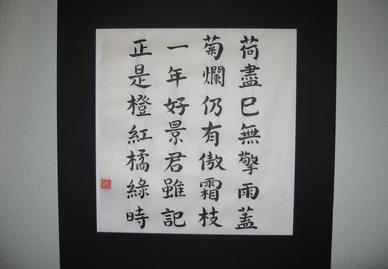 荷盡已無擎雨蓋
菊爛仍有傲霜枝
一年好景君雖記
正是橙紅橘綠時